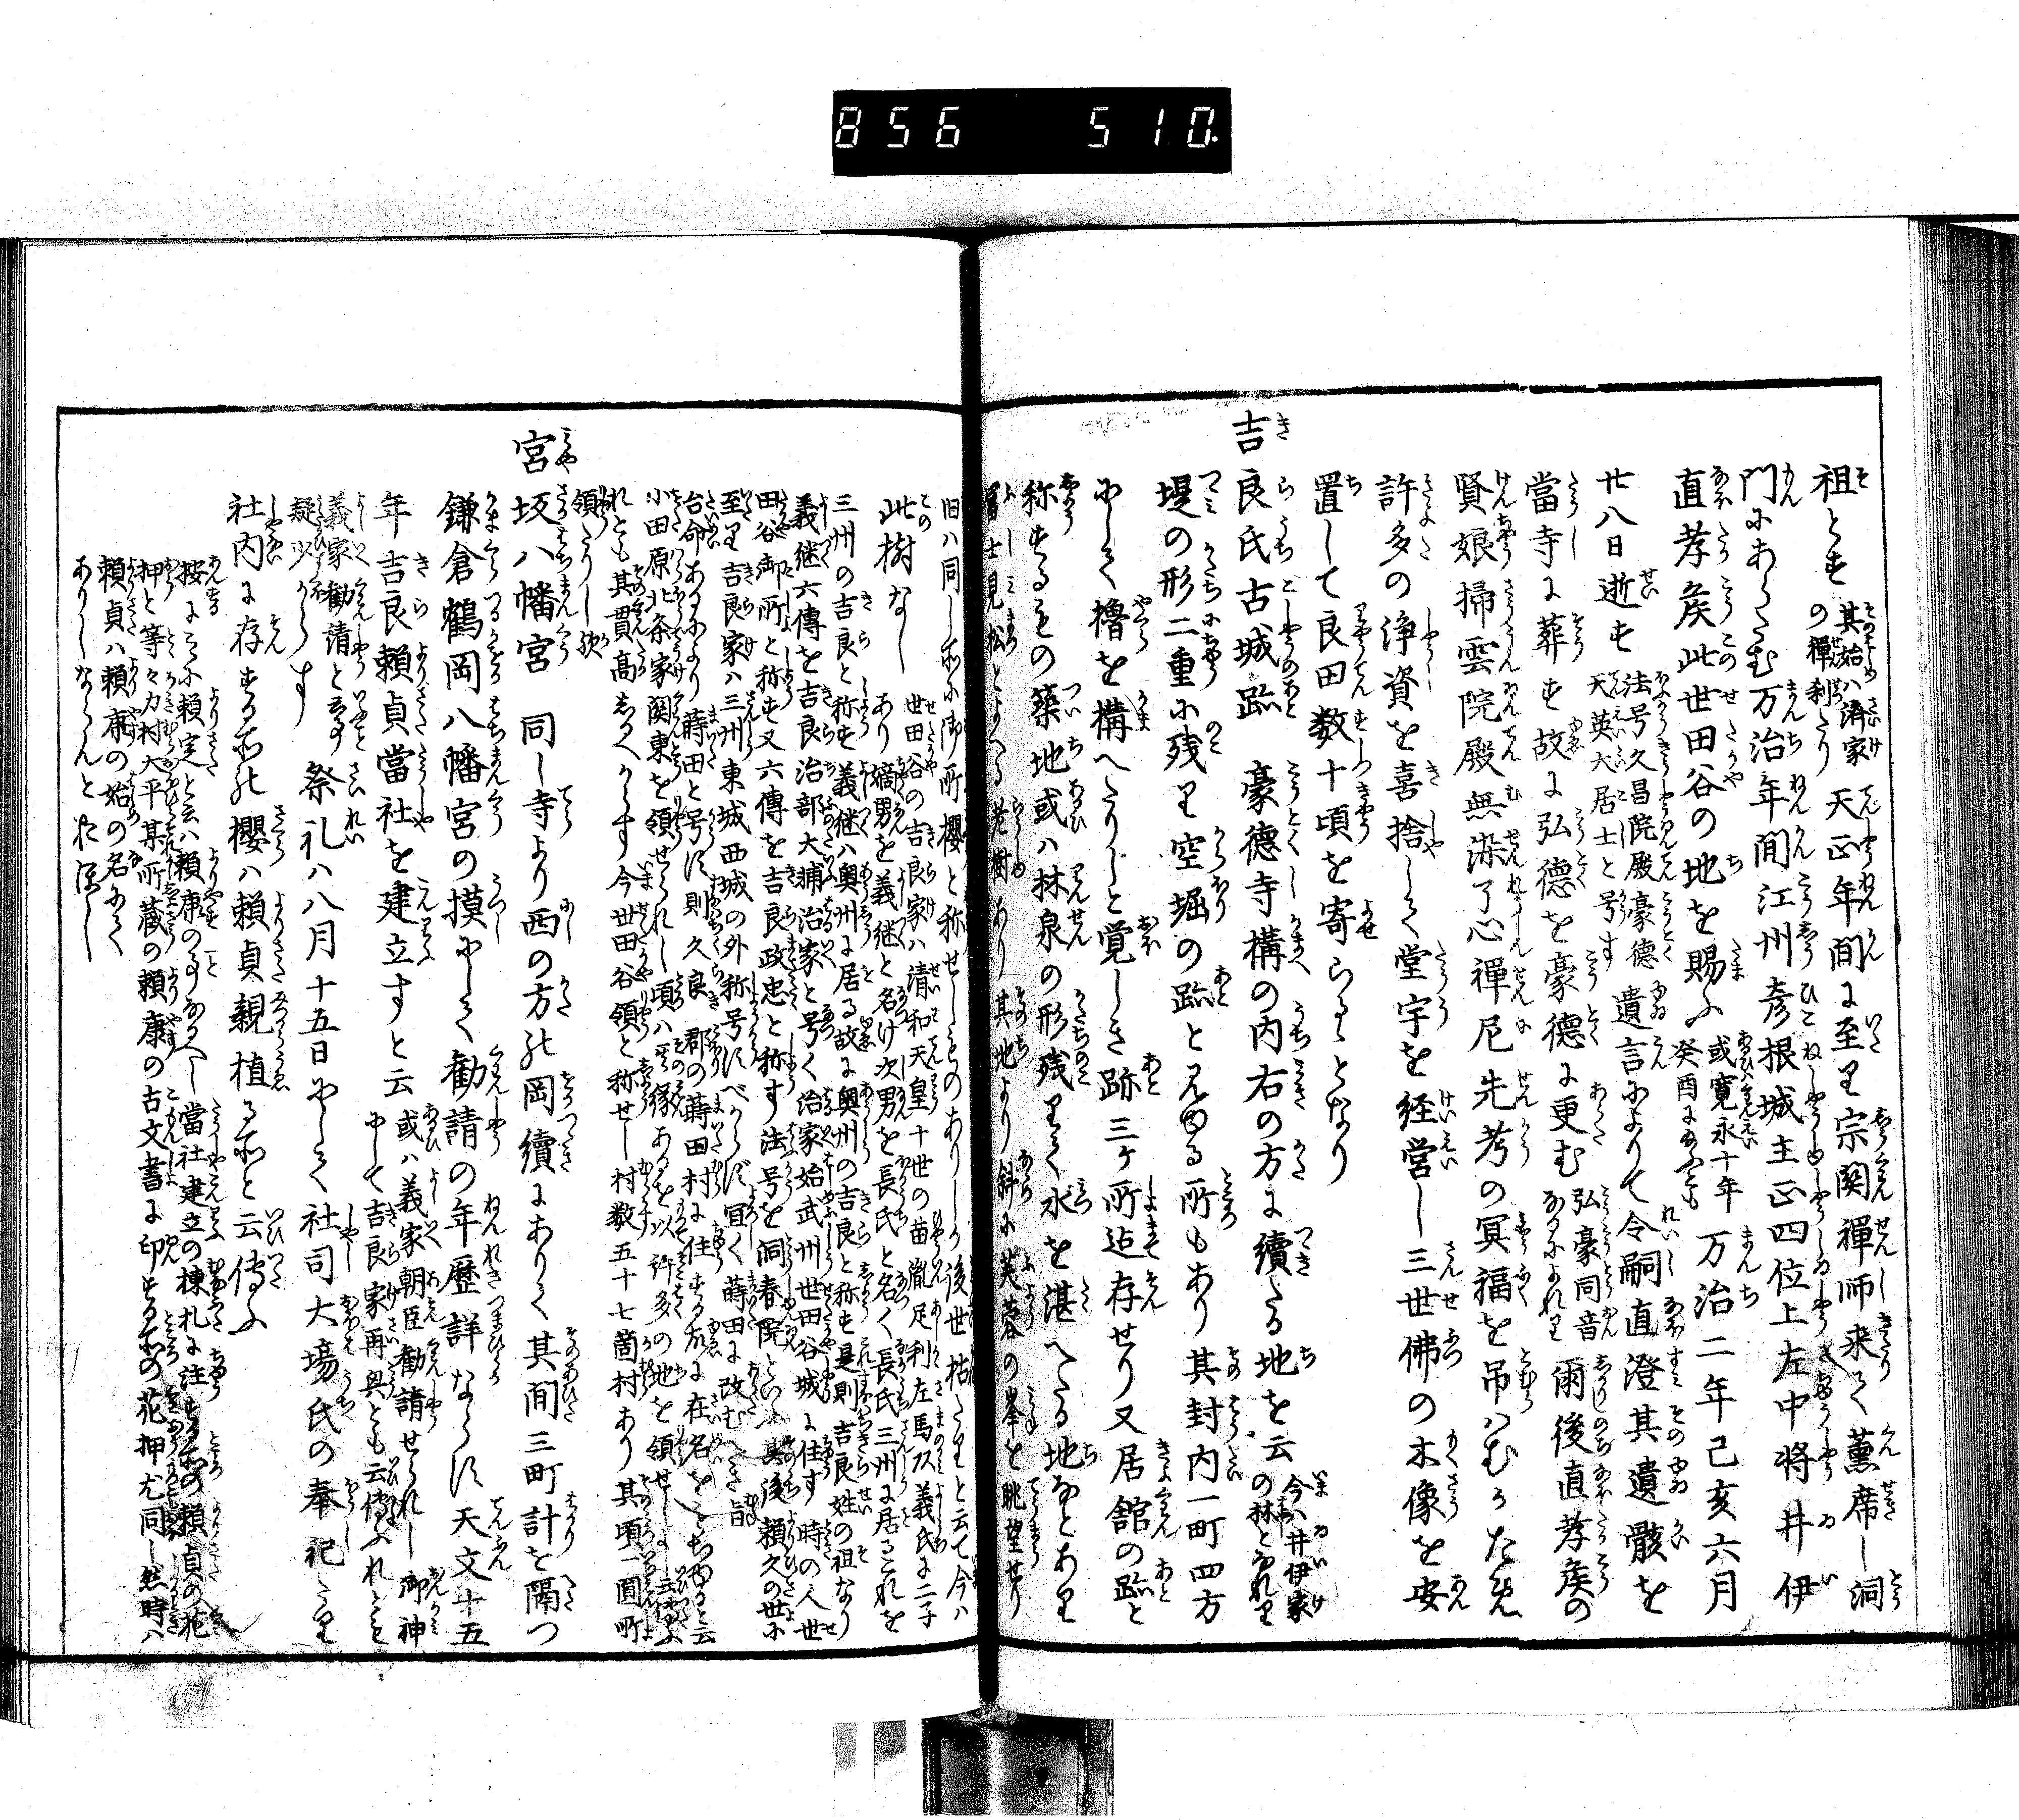 856 510.
祖とす其始ハ濟家の禪刹たり天正年間に至り宗関禪師来て薫席し洞
門にあらたむ万治年間江州彦根城主正四位上左中将井伊
直孝矦此世田谷の地を賜ふ或寛永十年癸酉にあやとも万治二年己亥六月
廿八日逝す法号久昌院殿豪德天英大居士と号す遺言によりて令嗣直澄其遺骸を
當寺に葬す故に弘德を豪德に更む弘豪同音なるによれり爾後直孝矦の
賢娘掃雲院殿無染了心禪尼先考の冥福を吊はむかため
許多の浄資を喜捨して堂宇を経営し三世佛の木像を安
置して良田数十頃を寄らるゝとなり
吉良氏古城趾 豪德寺構の内右の方に續たる地を云今ハ井伊家の林となれり
堤の形二重に残り空堀の趾と見ゆる所もあり其封内一町四方
にして櫓を構へたりしと覚しき跡三ヶ所迄存せり又居舘の趾と
称するもの築地或ハ林泉の形残りて水を湛へたる地なとあり
冨士見松とよへる老樹あり其地より斜に芙蓉の峯を眺望せり
旧ハ同し所に御所櫻と称せしものありしか後世枯たりと云て今ハ
此樹なし世田谷の吉良家ハ清和天皇十世の苗胤足利左馬介義氏に二子
あり嫡男を義継と名け次男を長氏と名く長氏三州に居るこれを
三州の吉良と称す義継ハ奥州に居る故に奥州の吉良と称す是則吉良姓の祖なり
義継六傳を吉良治部大輔治家と号く治家始武州世田谷城に住す時の人世
田谷御所と称す又六傳を吉良政忠と称す法号を洞春院といふ其後頼久の世に
至り吉良家ハ三州東城西城の外称号すべからず宜く蒔田に改むへき旨
台命あるにより蒔田と号す則久良郡の蒔田村に住する故に在名をとなゆると云
小田原北条家関東を領せられし頃ハ其縁あるを以許多の地を領せしよし云傳ふ
れとも其貫高しるへからす今世田谷領と称せし村数五十七箇村あり其頃一圓所
領たりし歟
宮坂八幡宮 同し寺より西の方の岡續にありて其間三町計を隔つ
鎌倉鶴岡八幡宮の摸にして勧請の年歴詳ならす天文十五
年吉良頼貞當社を建立すと云或ハ義家朝臣勧請せられし御神にして吉良家再興とも云傳ふれとも
義家勧請と云事疑少からす祭礼ハ八月十五日にして社司大塲氏の奉祀たり
社内に存する所の櫻ハ頼貞親植る所と云傳ふ
按るにこゝに頼定と云ハ頼康の事なるへし當社建立の棟札に注する所の頼貞の花
押と等々力村大平某所蔵の頼康の古文書に印する所の花押尤同し然時ハ
頼貞ハ頼康の始の名にて
ありしならんと